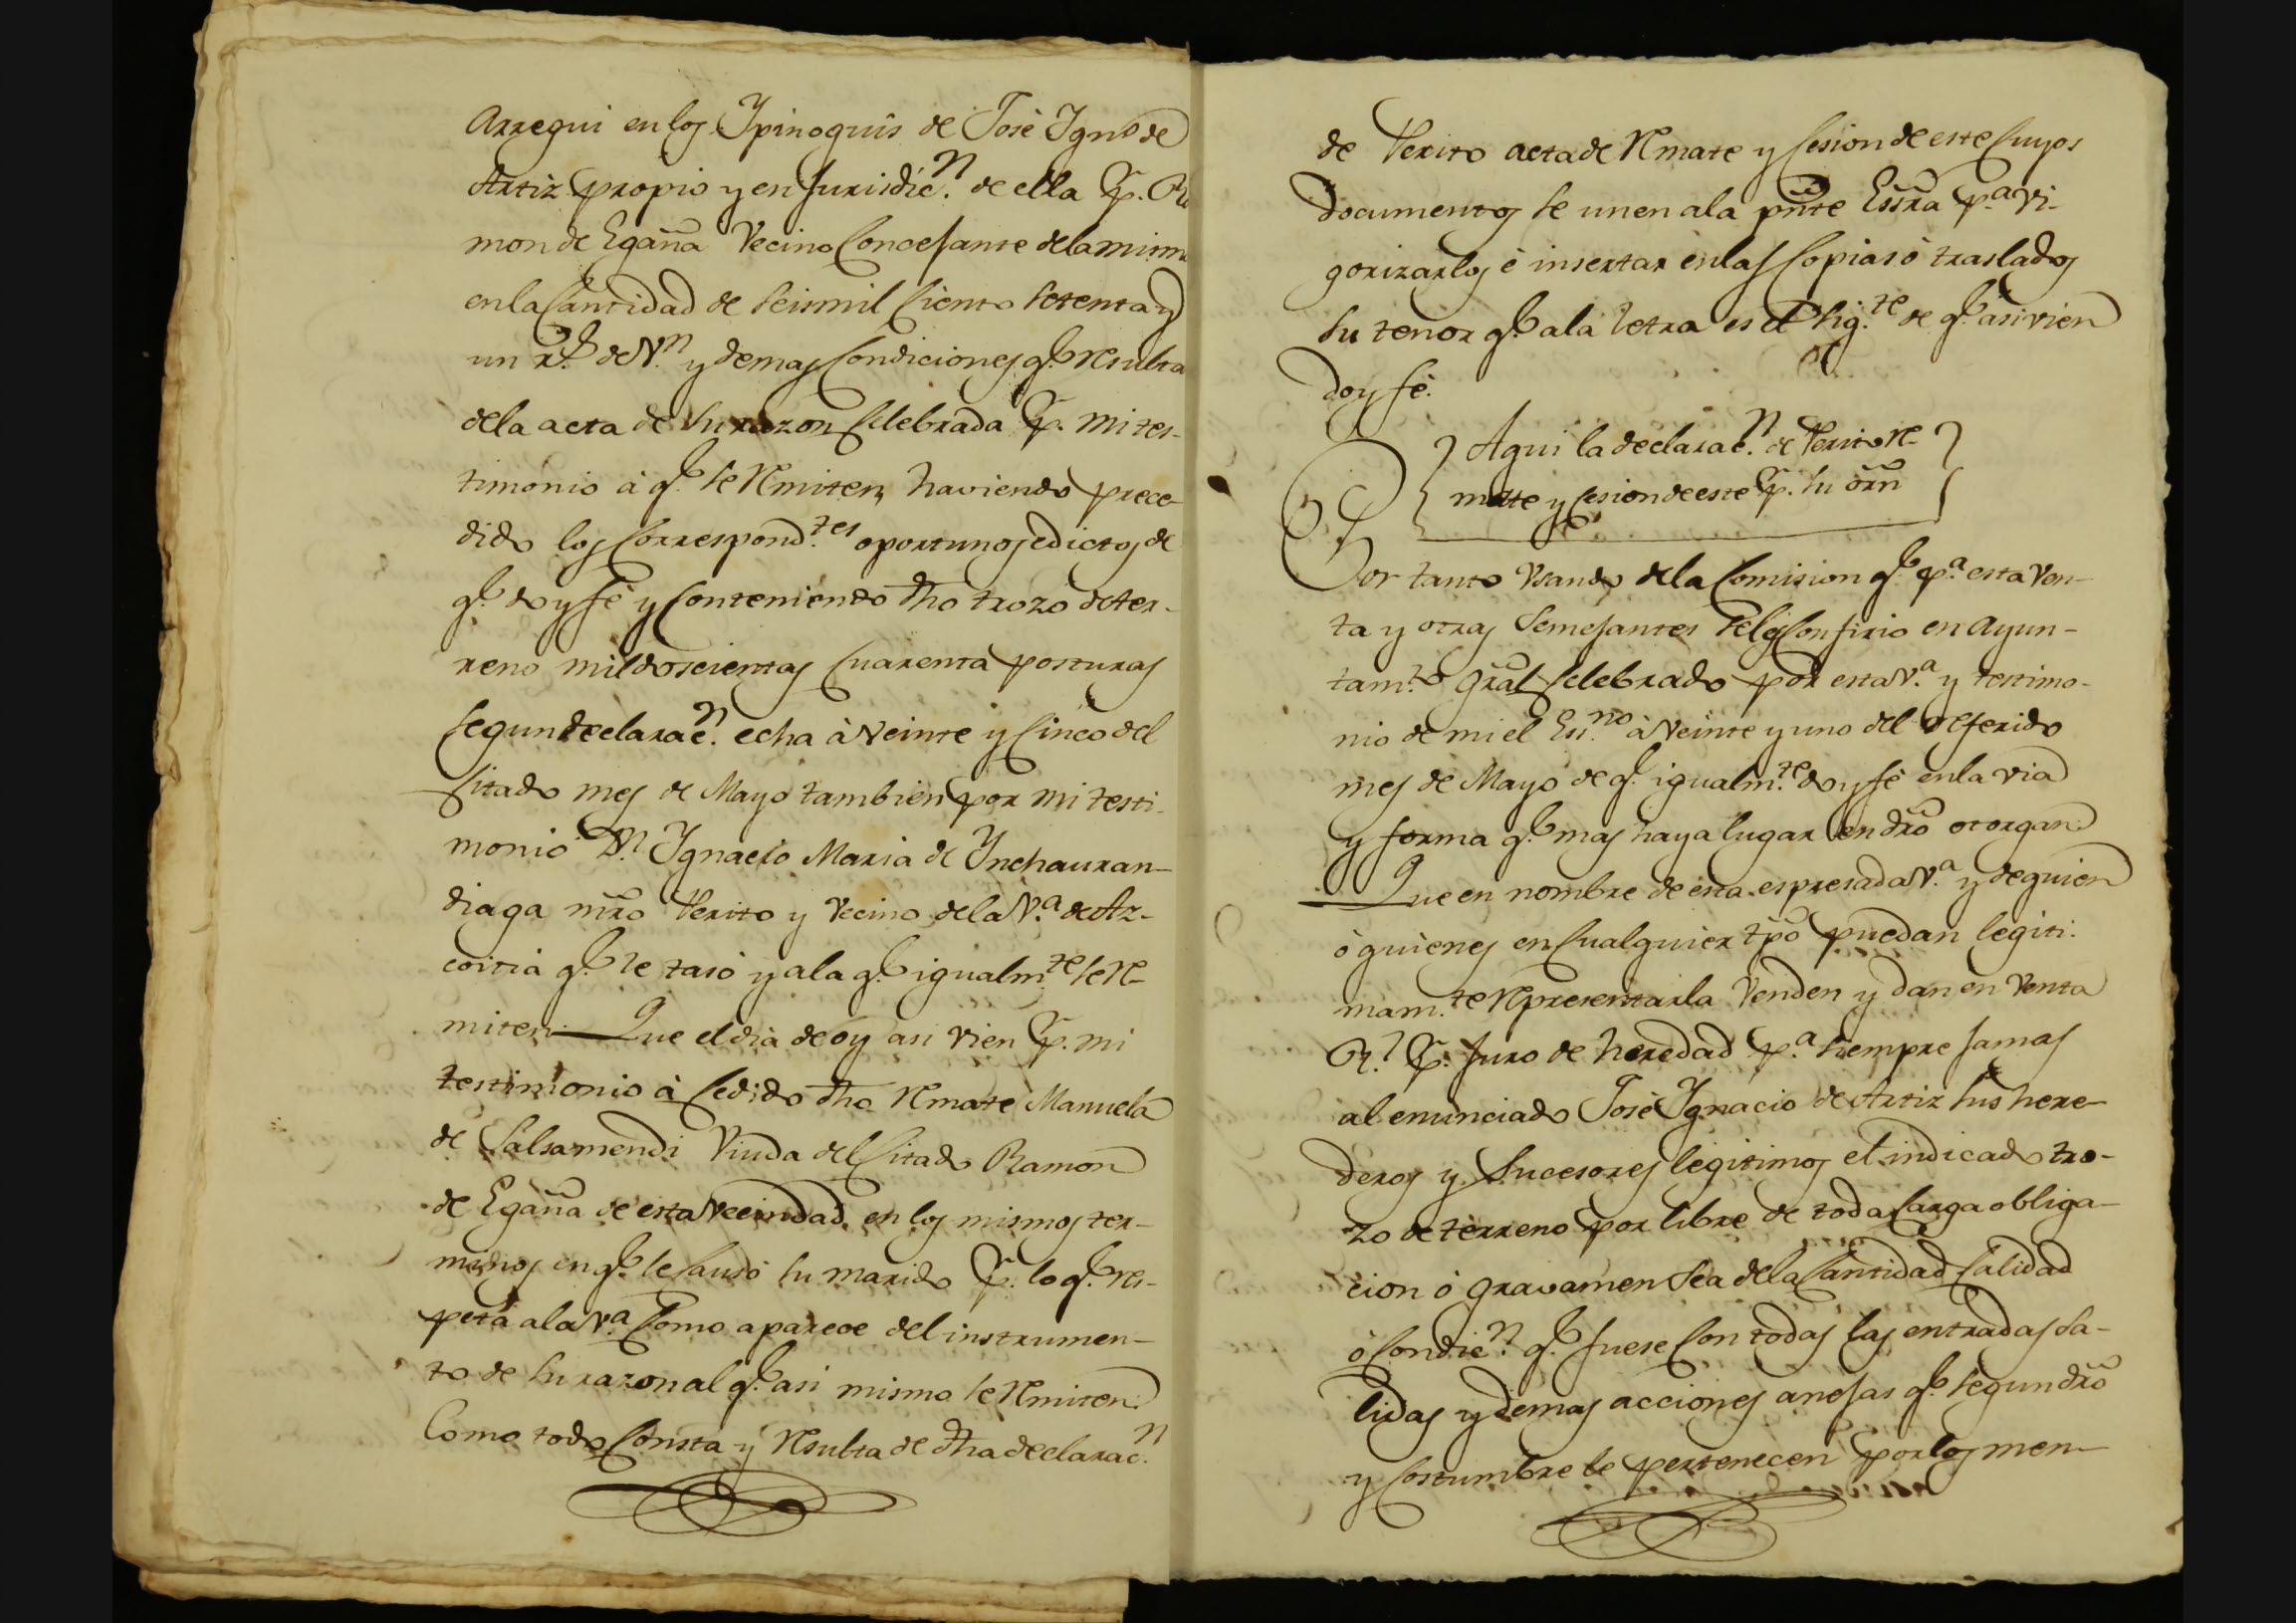 Arregui en los Ypinoguis de José Ygn.º de
Artiz propio y en Jurisdic.n de ella p.r Ra
mon de Egaña Vecino Concejante de la misma
en la Cantidad de seis mil Ciento setenta y
un r.s de V.n y demas Condiciones q.e resulta
de la acta de su razon Celebrada p.r mi tes-
timonio à q.e se remiten haviendo prece-
dido los Correspond.tes oportunos edictos de
q.e doy fé y Conteniendo dho trozo de ter-
reno mil doscientas Cuarenta posturas
segun declarac.n echa à veinte y Cinco del
Citado mes de Mayo tambien por mi testi-
monio D.n Ygnacio Maria de Ynchauran-
diaga mro Perito y Vecino de la V.a de Az-
coitia q.e le tasó y a la q.e igualm.te se re-
miten. Que el dia de oy asi vien p.r mi
testimonio à Cedido dho remate Manuela
de Salsamendi Viuda del Citado Ramon
de Egaña de esta Vecindad en los mismos ter-
minos en q.e le Causó su marido p.r lo q.e res-
peta a la V.a Como aparece del instrumen-
to de su razon al q.e asi mismo se remiten.
Como todo Consta y resulta de dha declarac.n
de Perito acta de remate y Cesion de este Cuyos
documentos se unen a la pñte Essra p.a vi-
gorizarlos é insertar en las Copias ó traslados
su tenor q.e a la letra es el sig.te de q.e asi vien
doy fé.
Aqui la declarac.n de Perito re-
mate y Cesion de este p.r su orñ
Por tanto Usando de la Comision q.e p.a esta Ven-
ta y otras Semejantes se les Confirio en Ayun-
tam.to gral Celebrado por esta V.a y testimo-
nio de mi el Ess.no à veinte y uno del referido
mes de Mayo de q.e igualm.te doy fé en la via
y forma q.e mas haya lugar en dro otorgan:
Que en nombre de esta espresada V.a y de quien
ó quienes en Cualquier tpo puedan legiti-
mam.te representarla Venden y dan en Venta
R.l p.r Juro de heredad p.a siempre Jamas
al enunciado José Ygnacio de Artiz sus here-
deros y Sucesores legitimos el indicado tro-
zo de terreno por libre de toda Carga obliga-
cion ó gravamen sea de la Cantidad Calidad
ó Condic.n q.e fuese Con todas las entradas Sa-
lidas y demas acciones anejas q.e segun dro
y Costumbre le pertenecen por los men-